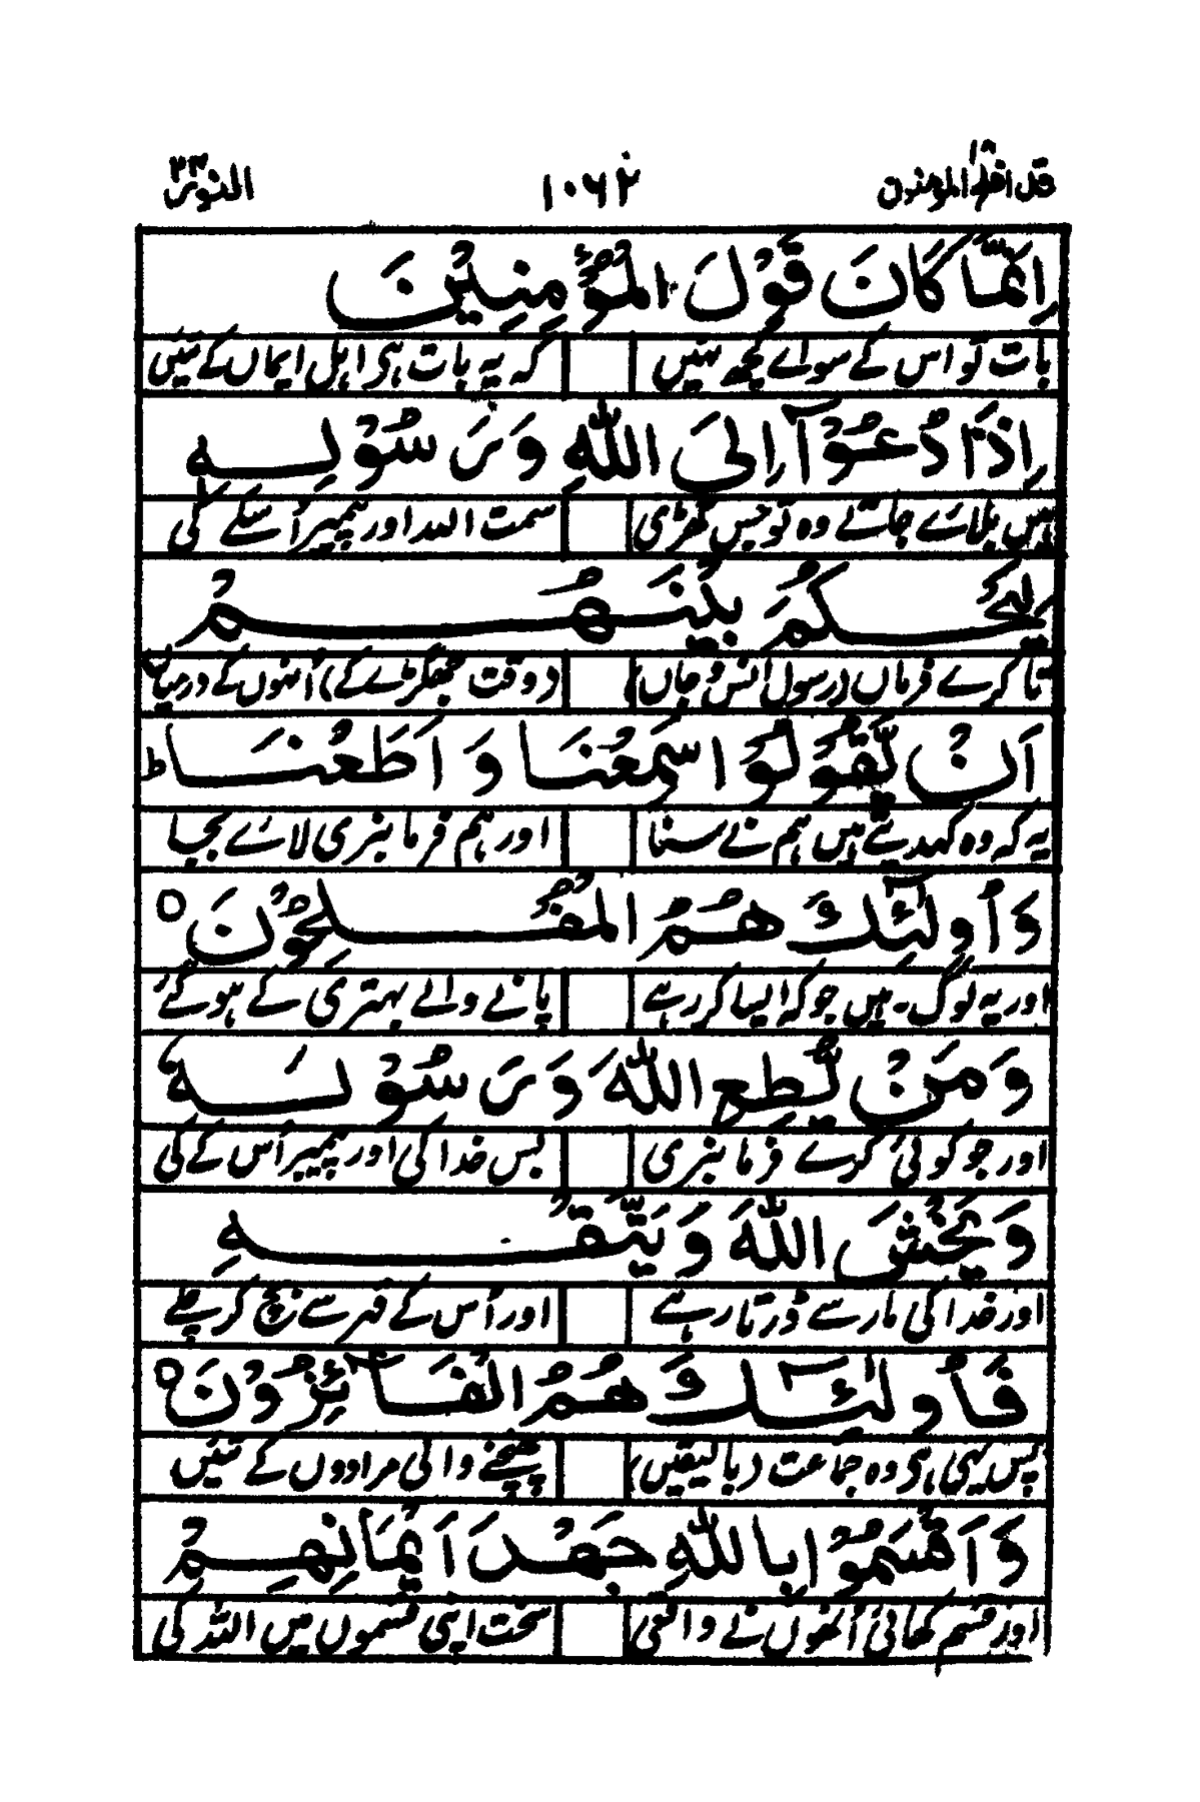 قد افلح المؤمنون ١٨ ١٠٦٢ النور ٢٤
اِنَّمَا كَانَ قَوْلَ الْمُؤْمِنِيْنَ
بات تو اس کے سوائے کچھ نہیں کہ یہ بات ہی اہل ایماں کے تئیں
اِذَا دُعُوْٓا اِلَى اللّٰهِ وَرَسُوْلِهٖ
ہیں بلائے جاتے وہ تو جس گھڑی سمت اللہ اور پیمبر اُسکے کی
لِيَحْكُمَ بَيْنَهُمْ
تا کرے فرماں (رسول اُنس و جاں) (وقت جھگڑے کے) اُنہوں کے درمیاں
اَنْ يَّقُوْلُوْا سَمِعْنَا وَاَطَعْنَا ط
یہ کہ وہ کہدیتے ہیں ہم نے سنا اور ہم فرمانبری لائے بجا
وَاُولٰٓئِكَ هُمُ الْمُفْلِحُوْنَ ○
اور یہ لوگ ہیں جو کہ ایسا کر رہے پانے والے بہتری کے ہو گئے
وَمَنْ يُّطِعِ اللّٰهَ وَرَسُوْلَهٗ
اور جو کوئی کرے فرمانبری بس خدا کی اور پیمبر اُس کے کی
وَيَخْشَ اللّٰهَ وَيَتَّقْهِ
اور خدا کی مار سے ڈرتا رہے اور اُس کے قہر سے بچ کر چلے
فَاُولٰٓئِكَ هُمُ الْفَآئِزُوْنَ ○
پس یہی ہی وہ جماعت (بالیقیں) پہنچنے والی مرادوں کے تئیں
وَاَقْسَمُوْا بِاللّٰهِ جَهْدَ اَيْمَانِهِمْ
اور قسم کھائی اُنھوں نے واقعی سخت اپنی قسموں میں اللہ کی